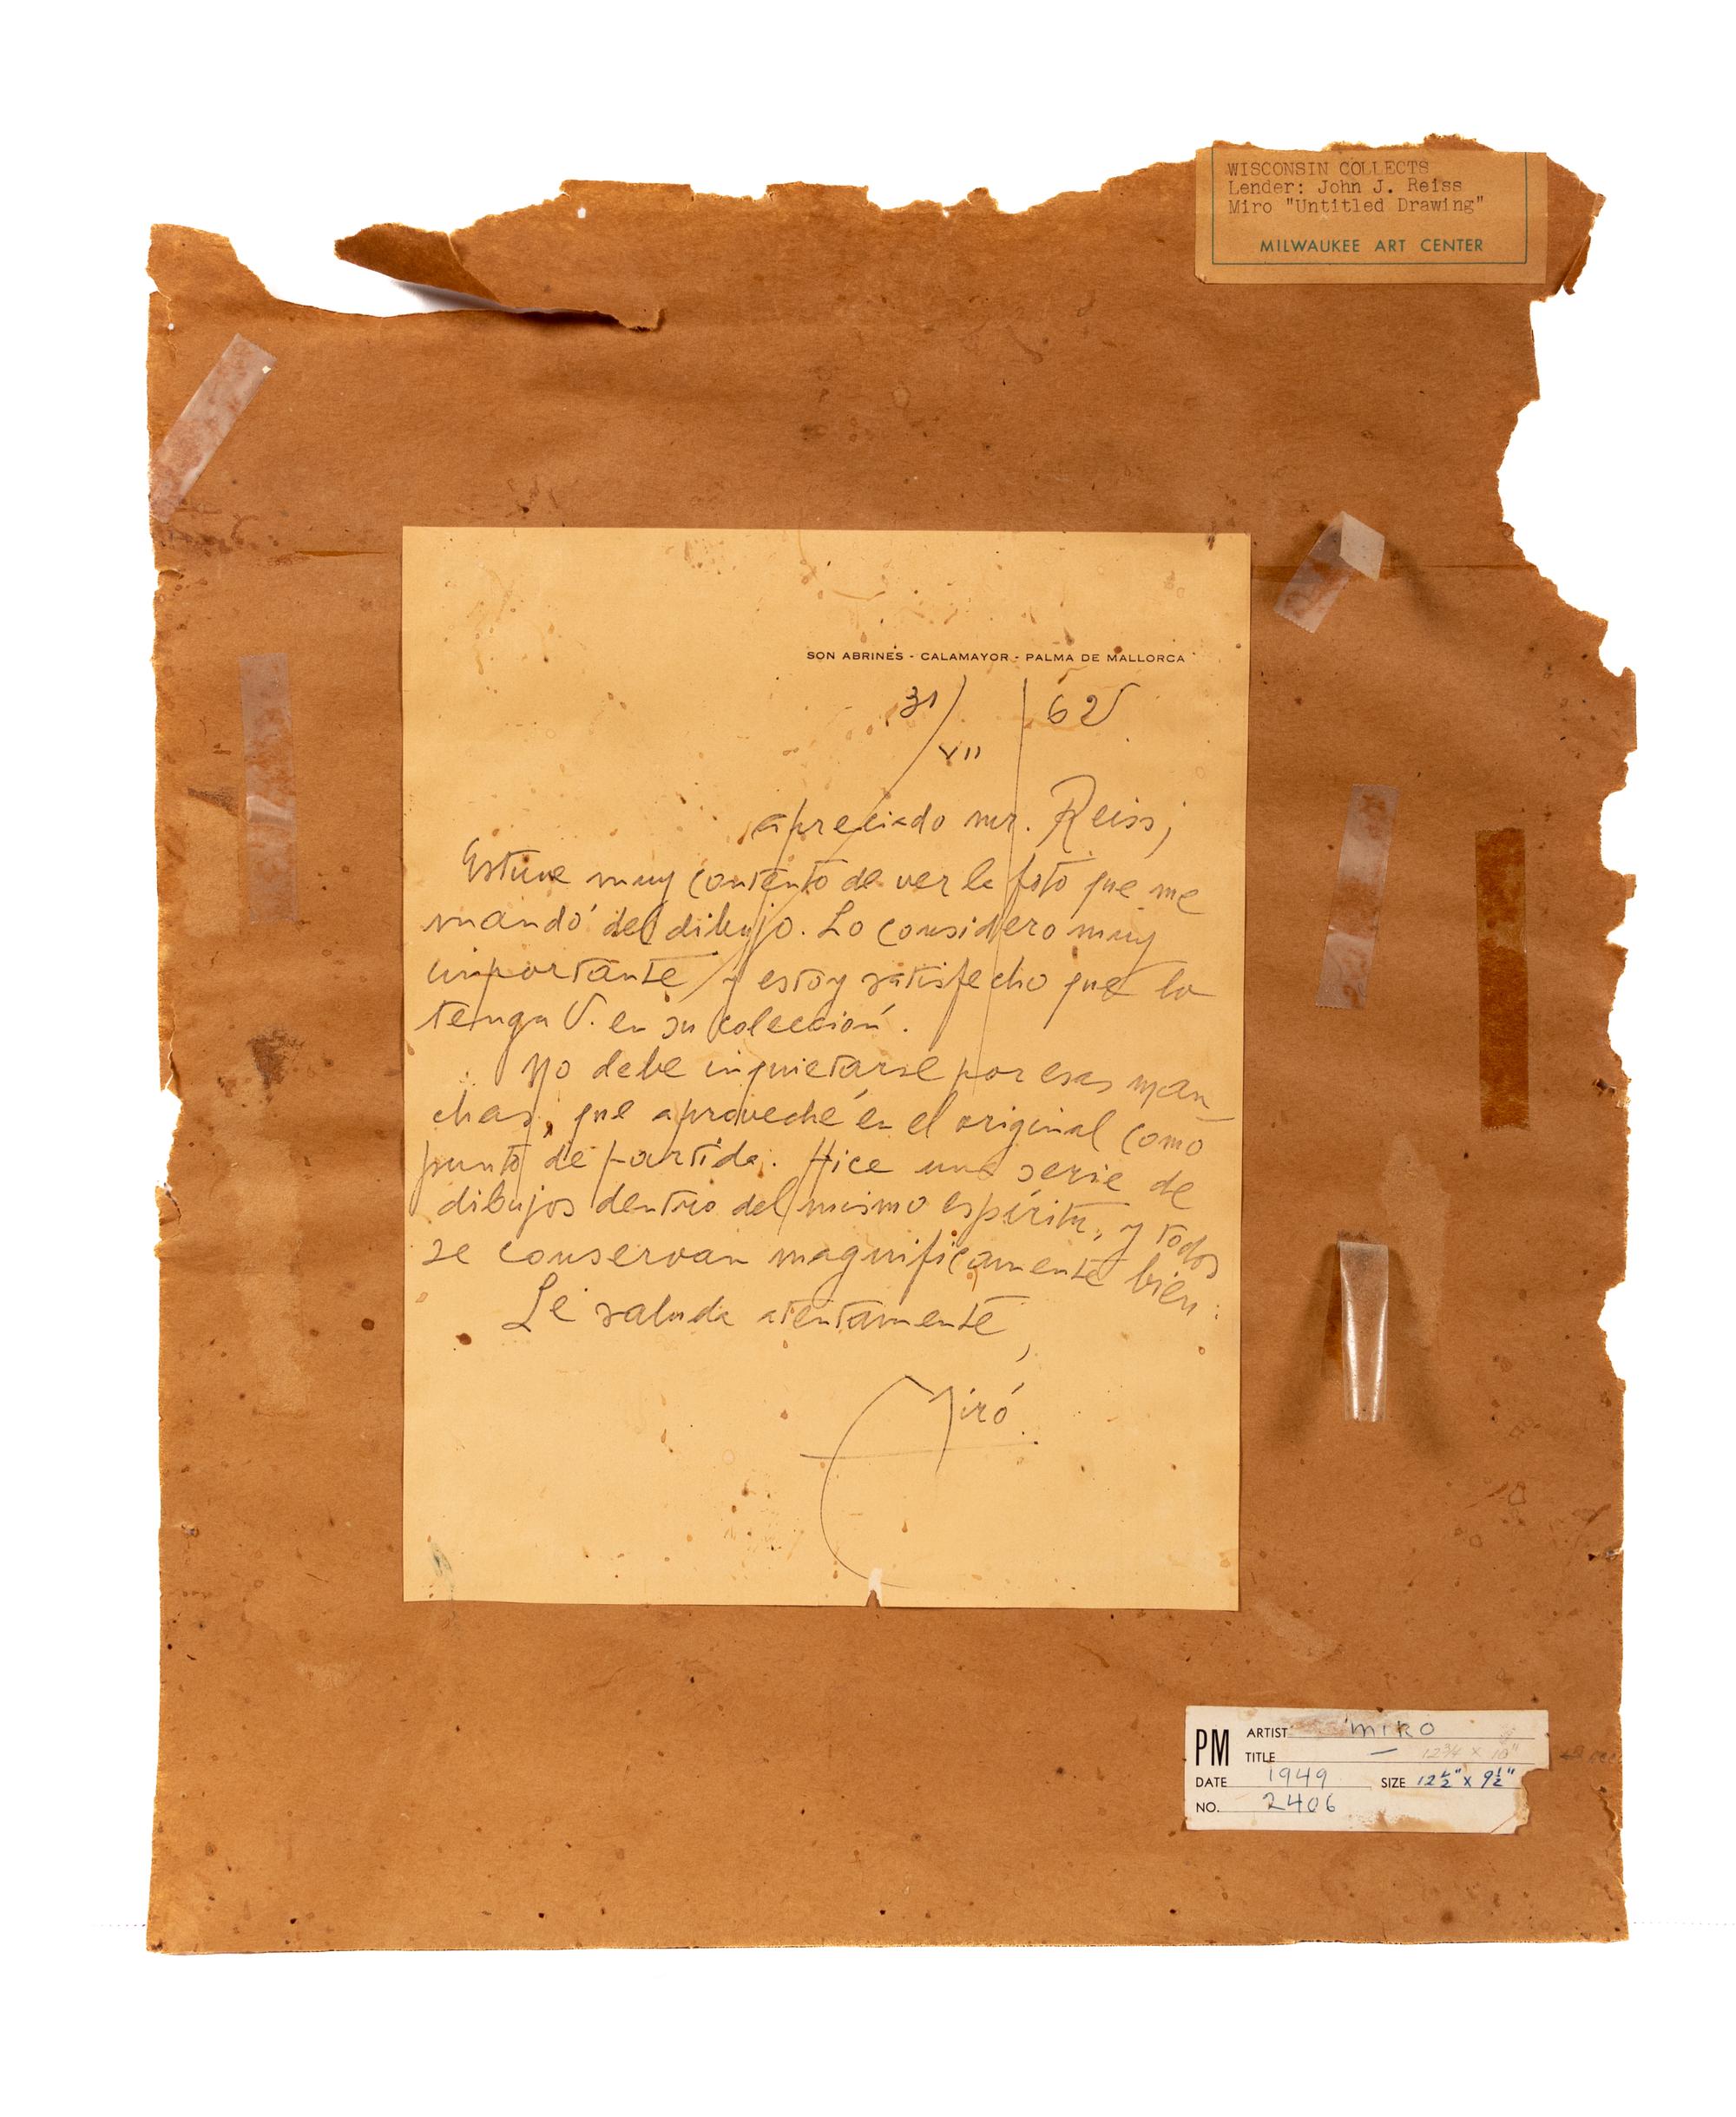 WISCONSIN COLLECTS
Lender: John J. Reiss
Miro "Untitled Drawing"
MILWAUKEE ART CENTER
SON ABRINES - CALAMAYOR - PALMA DE MALLORCA
31/VII | 62
apreciado mr. Reiss,
Estuve muy contento de ver la foto que me
mandó del dibujo. Lo considero muy
importante y estoy satisfecho que lo
tenga V. en su colección.
No debe inquietarse por esas man-
chas, que aproveché en el original como
punto de partida. Hice una serie de
dibujos dentro del mismo espíritu, y todos
se conservan magnificamente bien.
Le saluda atentamente,
Miró
PM ARTIST MIRO
TITLE — 12 3/4 x 10"
DATE 1949 SIZE 12 1/2" x 9 1/2"
NO. 2406